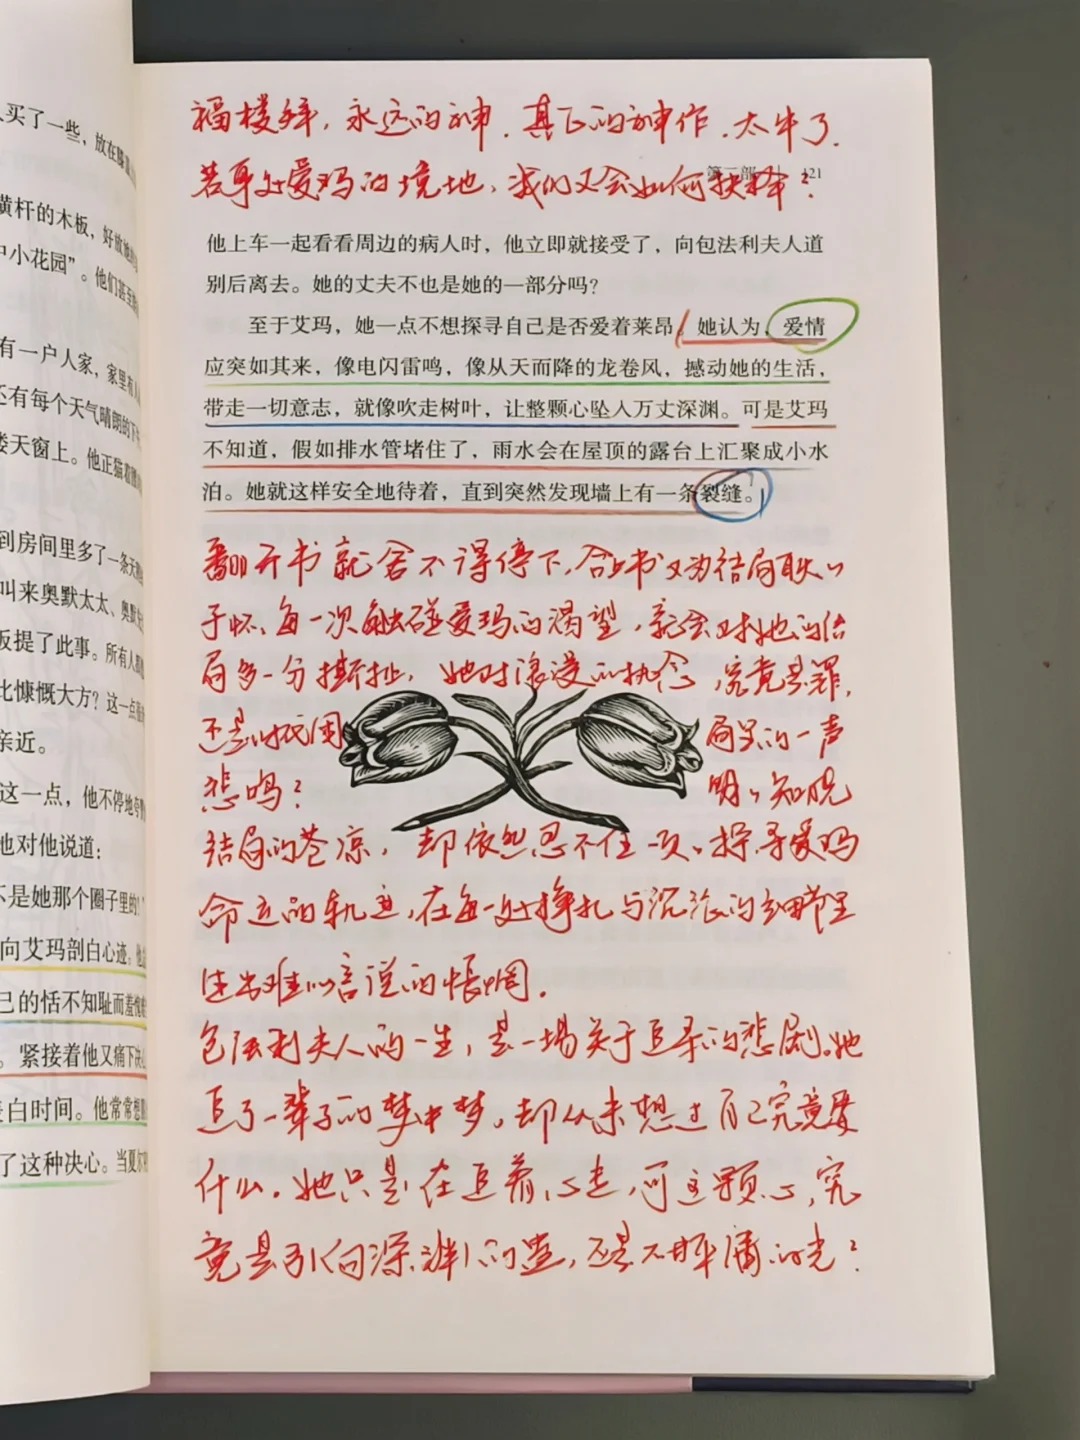 人买了一些，放在膝盖
横杆的木板，好放她的
中小花园”。他们甚至
有一户人家，家里有人
还有每个天气晴朗的下
楼天窗上。他正猫着腰
到房间里多了一条天
叫来奥默太太、奥默
板提了此事。所有人都
比慷慨大方？这一点
亲近。
这一点，他不停地夸
地对他说道：
不是她那个圈子里的！”
向艾玛剖白心迹。他
己的恬不知耻而羞愧
。紧接着他又痛下决心
表白时间。他常常想
了这种决心。当夏尔
福楼拜，永远的神，真正的神作，太牛了。
若身处爱玛的境地，我们又会如何抉择？
第二部 121
他上车一起看看周边的病人时，他立即就接受了，向包法利夫人道
别后离去。她的丈夫不也是她的一部分吗？
至于艾玛，她一点不想探寻自己是否爱着莱昂。她认为，爱情
应突如其来，像电闪雷鸣，像从天而降的龙卷风，撼动她的生活，
带走一切意志，就像吹走树叶，让整颗心坠入万丈深渊。可是艾玛
不知道，假如排水管堵住了，雨水会在屋顶的露台上汇聚成小水
泊。她就这样安全地待着，直到突然发现墙上有一条裂缝。
翻开书就舍不得停下，合上书又为结局耿耿
于怀，每一次触碰爱玛的渴望，就会对她的结
局多一分撕扯，她对浪漫的执念，究竟是罪，
还是对抗困局里的一声
悲鸣？明明知晓
结局的苍凉，却依然忍不住一次次探寻爱玛
命运的轨迹，在每一处挣扎与沉沦的细节里
生出难以言说的怅惘。
包法利夫人的一生，是一场关于追寻的悲剧。她
追了一辈子的梦中梦，却从未想过自己究竟要
什么。她只是在追着心走，可这颗心，究
竟是引向深渊的蛊，还是不甘平庸的光？